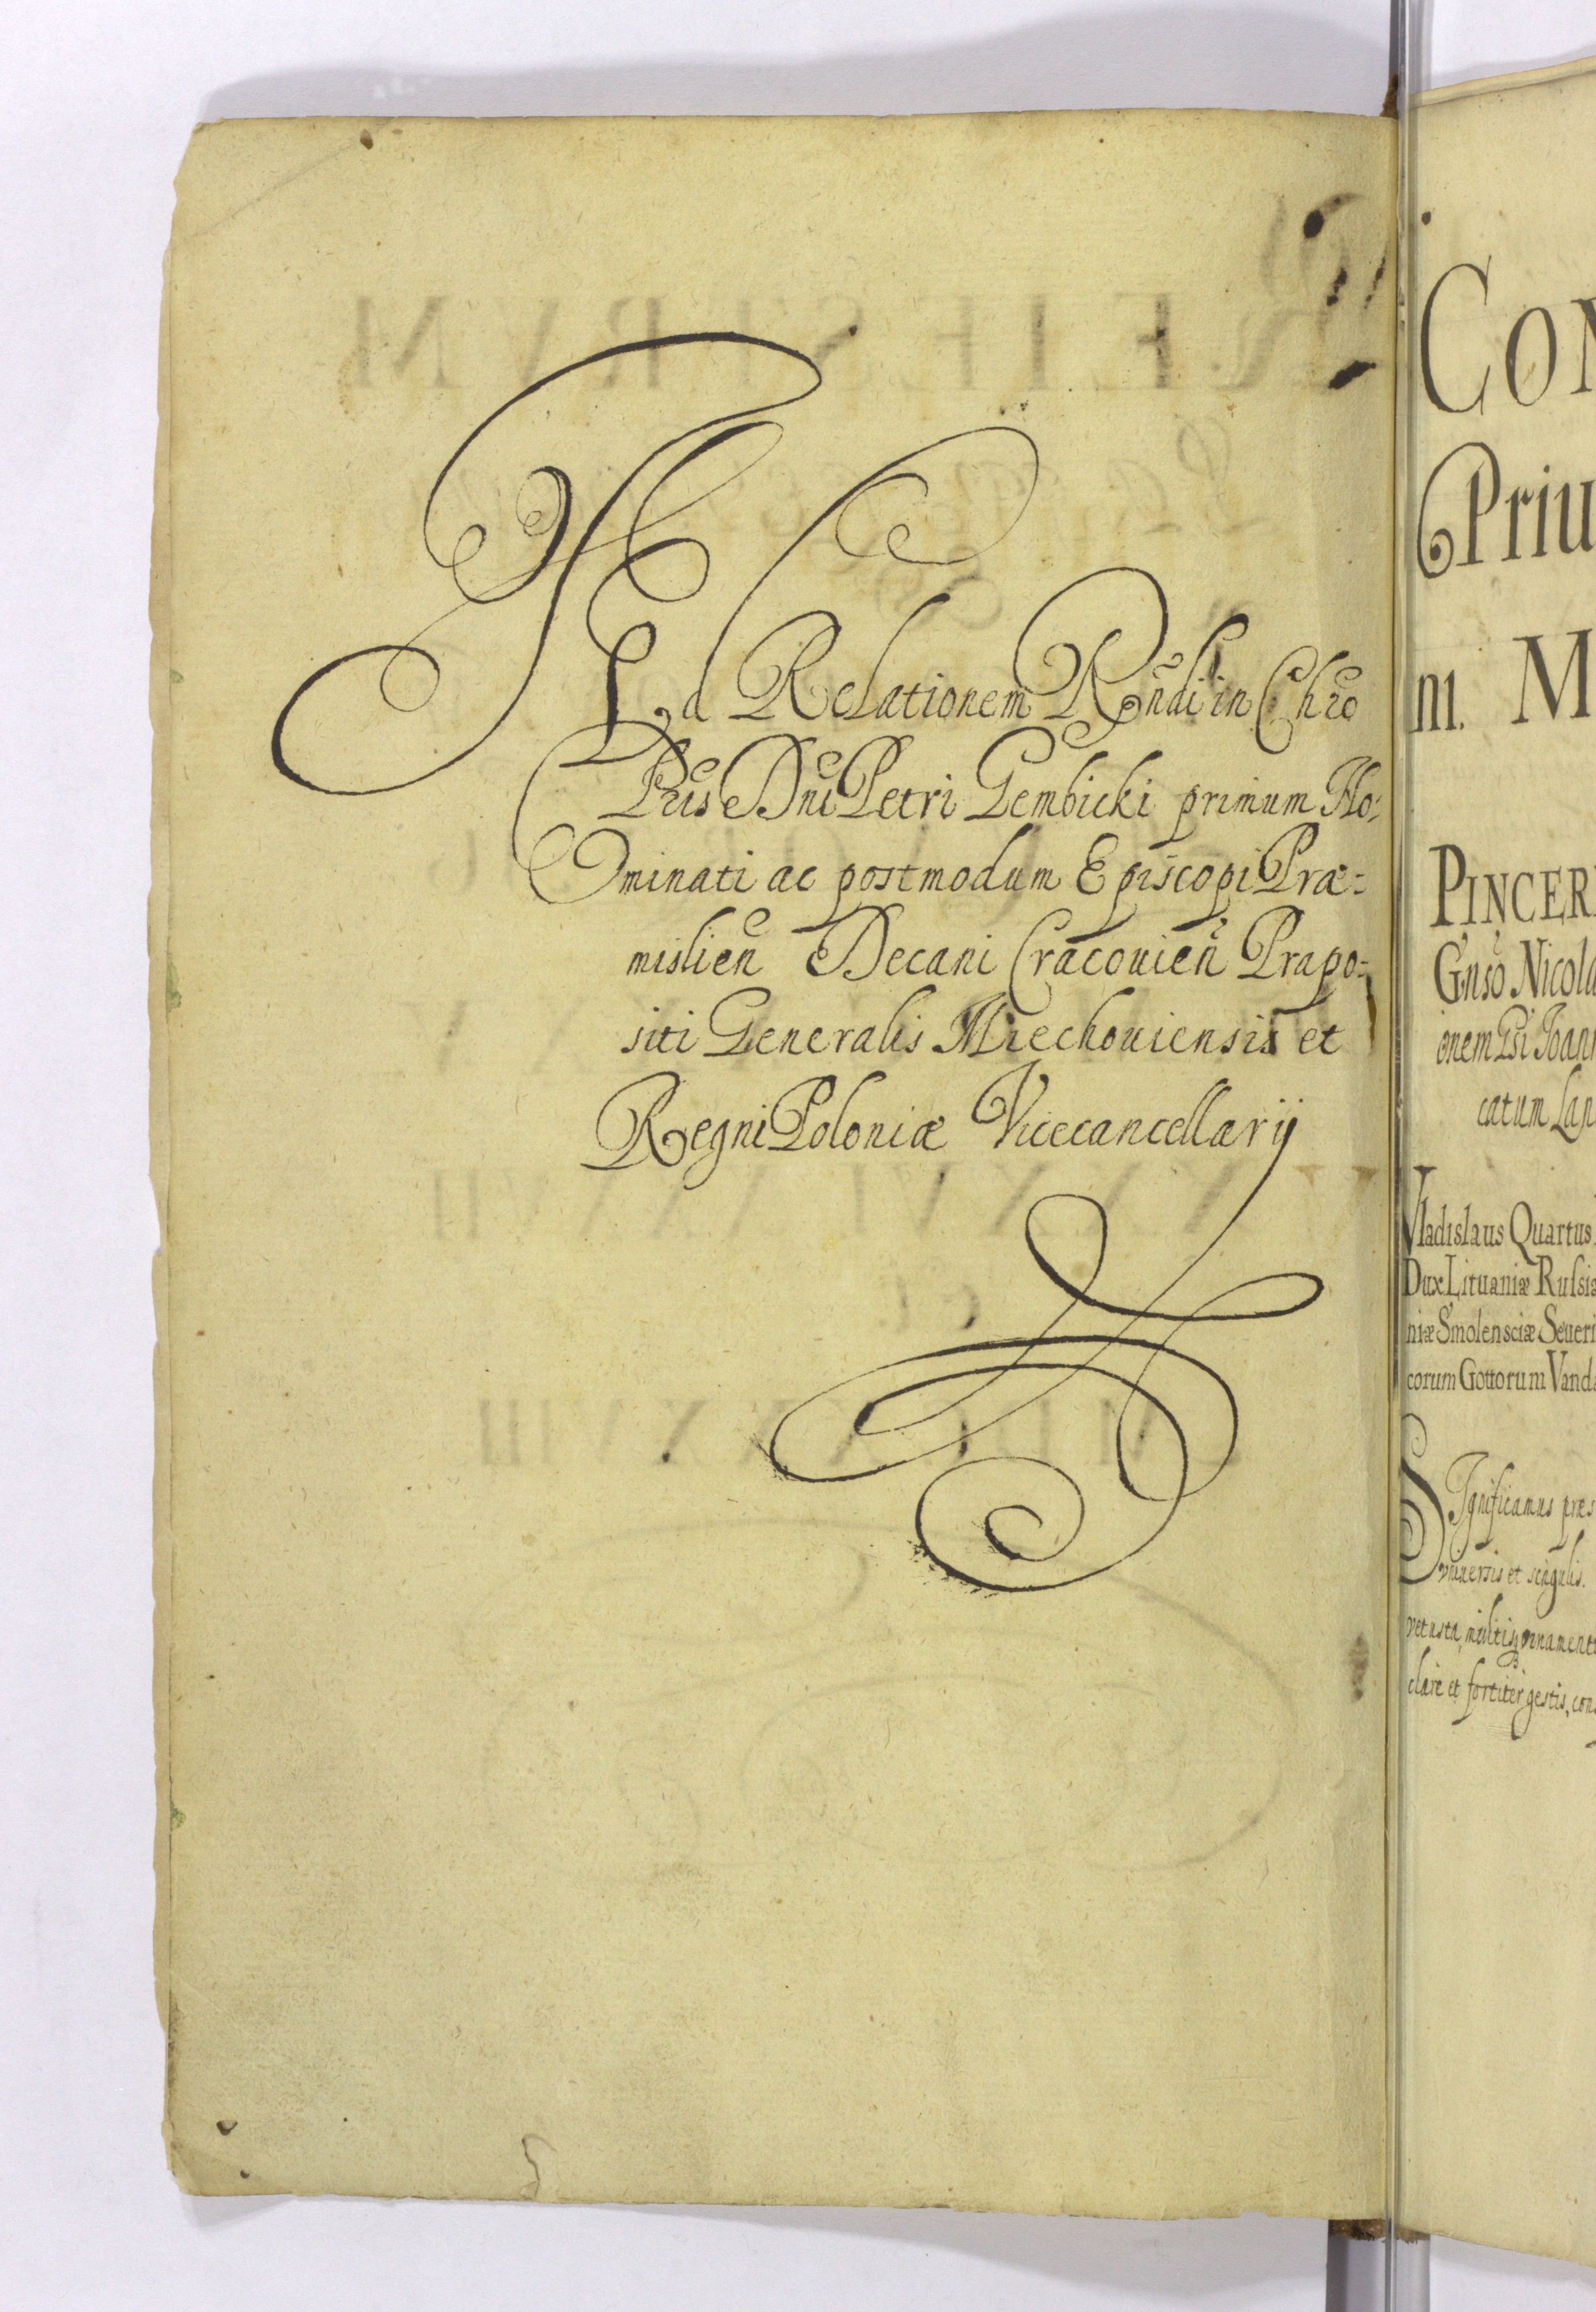 Ad Relationem Rñdi in Chro
Pris Dni Petri Gembicki primum No:
minati ac postmodum Episcopi Præ:
mislien̄ Decani Cracouien̄ Præpo:
siti Generalis Miechouiensis et
Regni Poloniæ Vicecancellarij
CON
Priu
m. M
PINCER
Gnso Nicola
onem Psi Joann
catum Lan
Vladislaus Quartus
Dux Lituaniæ Russiæ
niæ Smolensciæ Seueri
corum Gottorum Vanda
SIgnificamus præs
vniuersis et singulis.
vetusta, multisq ornament
clare et fortiter gestis, cons